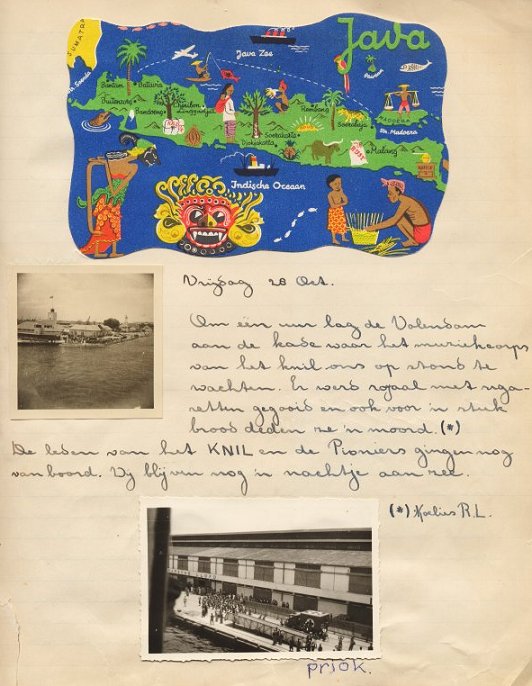 Java
SUMATRA
Java Zee
Str. Soenda
Bantam
Batavia
Buitenzorg
Bandoeng
Cheribon
Linggardjati
Rembang
Bawean
MADOERA
Str. Madoera
Soerabaja
Soerakarta
Djokjakarta
Malang
Indische Oceaan
Vrijdag 28 Oct.
Om één uur lag de Volendam
aan de kade waar het muziekcorps
van het knil ons op stond te
wachten. Er werd royaal met siga-
retten gegooid en ook voor 'n stuk
brood deden ze 'n moord. (*)
De leden van het KNIL en de Pioniers gingen nog
van boord. Wij blijven nog 'n nachtje aan zee.
(*) Koelies R.L.
priok.